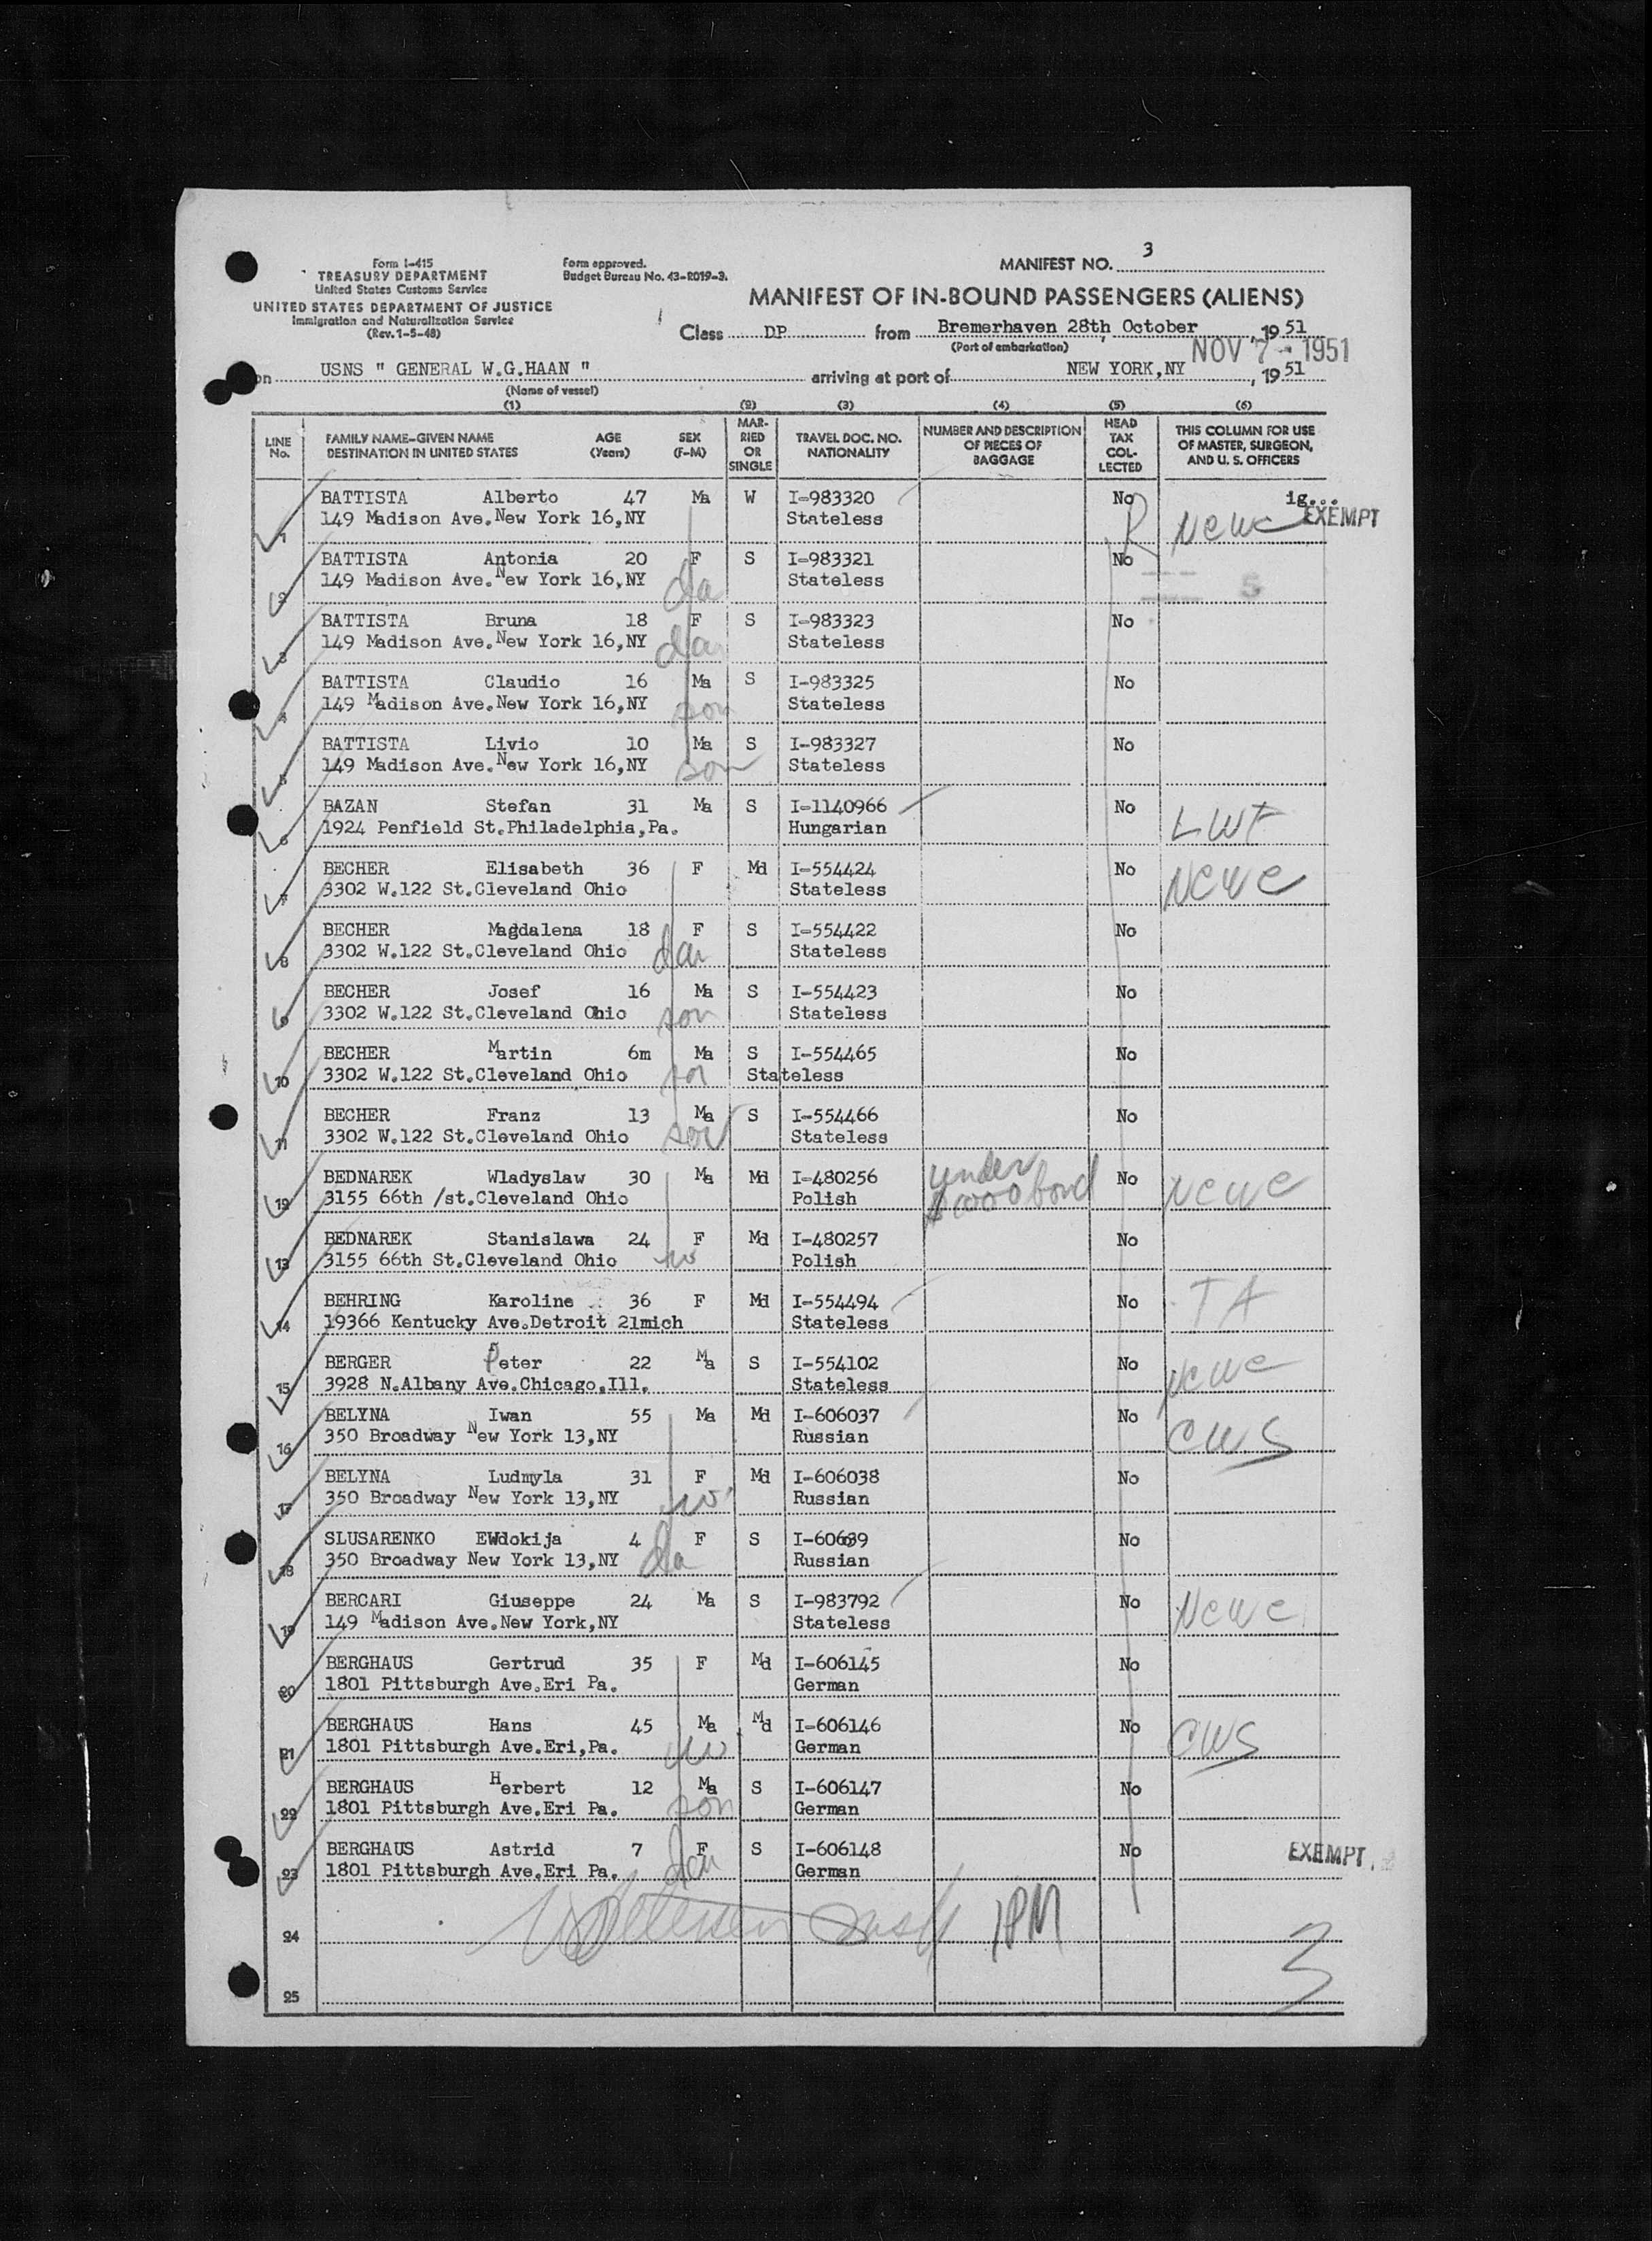 Form I-415
TREASURY DEPARTMENT
United States Customs Service
UNITED STATES DEPARTMENT OF JUSTICE
Immigration and Naturalization Service
(Rev. 1-5-48)
Form approved.
Budget Bureau No. 43-R019-3.
MANIFEST NO. 3
MANIFEST OF IN-BOUND PASSENGERS (ALIENS)
Class DP from Bremerhaven 28th, October, 1951
(Port of embarkation)
NOV 7 - 1951
on USNS " GENERAL W.G.HAAN " arriving at port of NEW YORK,NY, 1951
(Name of vessel)
(1) (2) (3) (4) (5) (6)
LINE No. FAMILY NAME-GIVEN NAME DESTINATION IN UNITED STATES AGE (Years) SEX (F-M) MARRIED OR SINGLE TRAVEL DOC. NO. NATIONALITY NUMBER AND DESCRIPTION OF PIECES OF BAGGAGE HEAD TAX COLLECTED THIS COLUMN FOR USE OF MASTER, SURGEON, AND U. S. OFFICERS
BATTISTA Alberto 47 Ma W I-983320 No ig...
1 149 Madison Ave.New York 16,NY Stateless R NCWC EXEMPT
BATTISTA Antonia 20 F S I-983321 No
2 149 Madison Ave.New York 16,NY da Stateless 5
BATTISTA Bruna 18 F S I-983323 No
3 149 Madison Ave.New York 16,NY dau Stateless
BATTISTA Claudio 16 Ma S I-983325 No
4 149 Madison Ave.New York 16,NY son Stateless
BATTISTA Livio 10 Ma S I-983327 No
5 149 Madison Ave.New York 16,NY son Stateless
BAZAN Stefan 31 Ma S I-1140966 No LWF
6 1924 Penfield St.Philadelphia,Pa. Hungarian
BECHER Elisabeth 36 F Md I-554424 No NCWC
7 3302 W.122 St.Cleveland Ohio Stateless
BECHER Magdalena 18 F S I-554422 No
8 3302 W.122 St.Cleveland Ohio dau Stateless
BECHER Josef 16 Ma S I-554423 No
9 3302 W.122 St.Cleveland Ohio son Stateless
BECHER Martin 6m Ma S I-554465 No
10 3302 W.122 St.Cleveland Ohio son Stateless
BECHER Franz 13 Ma S I-554466 No
11 3302 W.122 St.Cleveland Ohio son Stateless
BEDNAREK Wladyslaw 30 Ma Md I-480256 under No NCWC
12 3155 66th /st.Cleveland Ohio Polish $1000 bond
BEDNAREK Stanislawa 24 F Md I-480257 No
13 3155 66th St.Cleveland Ohio w Polish
BEHRING Karoline 36 F Md I-554494 No TA
14 19366 Kentucky Ave.Detroit 21mich Stateless
BERGER Peter 22 Ma S I-554102 No NCWC
15 3928 N.Albany Ave.Chicago.Ill. Stateless
BELYNA Iwan 55 Ma Md I-606037 No CWS
16 350 Broadway New York 13,NY Russian
BELYNA Ludmyla 31 F Md I-606038 No
17 350 Broadway New York 13,NY w Russian
SLUSARENKO EWdokija 4 F S No
18 350 Broadway New York 13,NY da Russian
BERCARI Giuseppe 24 Ma S I-983792 No NCWC
19 149 Madison Ave.New York,NY Stateless
BERGHAUS Gertrud 35 F Md I-606145 No
20 1801 Pittsburgh Ave.Eri Pa. German
BERGHAUS Hans 45 Ma Md I-606146 No CWS
21 1801 Pittsburgh Ave.Eri,Pa. w German
BERGHAUS Herbert 12 Ma S I-606147 No
22 1801 Pittsburgh Ave.Eri Pa. son German
BERGHAUS Astrid 7 F S I-606148 No EXEMPT
23 1801 Pittsburgh Ave.Eri Pa. dau German
24 1PM
25 3